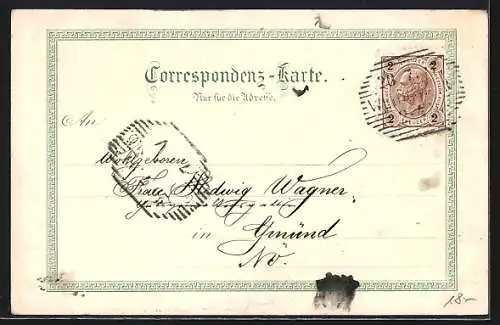 Correspondenz-Karte.
Nur für die Adresse.
2 2
2 2
An
Wohlgeboren
Frau Hedwig Wagner
in Gmünd
NÖ.
18-